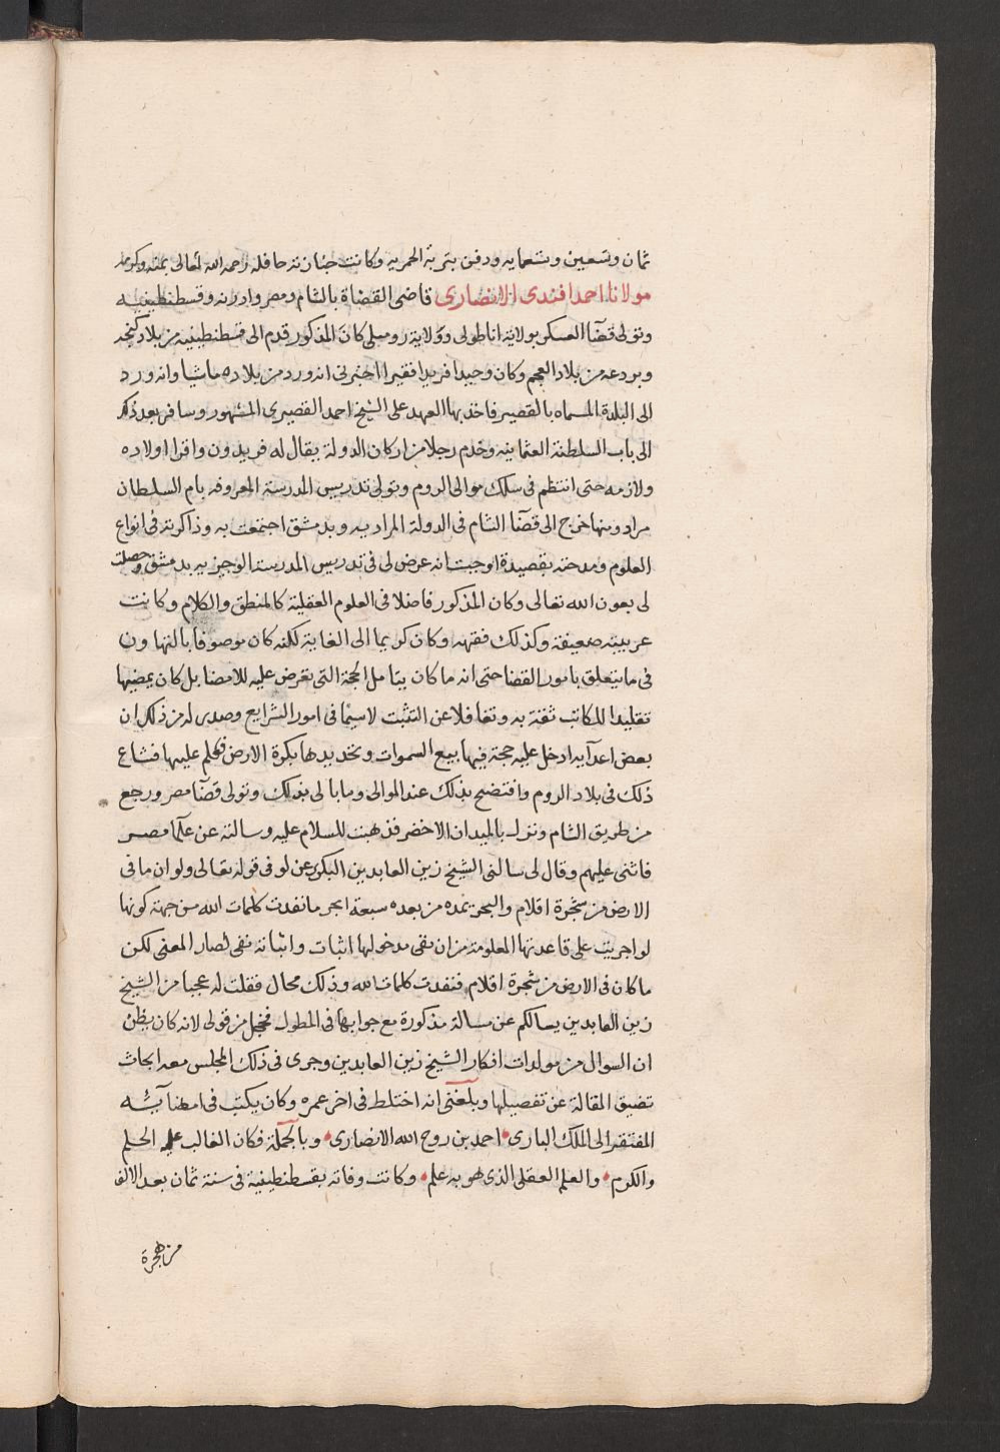 ثمان وتسعين وتسعمايه ودفن بتربة الحمريه وكانت جنازته حافله رحمه الله تعالى بمنه وكرمه
مولانا احمد افندى الانصارى قاضى القضاة بالشام ومصر وادرنه وقسطنطينيه
وتولى قضآ العسكر بولاية اناطولى وولاية روميلى كان المذكور قدم الى قسطنطينيه من بلاد كنجه
وبردعه من بلاد العجم وكان وحيدا فريدا فقيرا اخبرنى انه ورد من بلاده ماشيا وانه ورد
الى البلدة المسماه بالقصير فاخذ بها العهد على الشيخ احمد القصيرى المشهور وسافر بعد ذلك
الى باب السلطنة العثمانيه وخدم رجلا من اركان الدولة يقال له فريدون واقرا اولاده
ولازمه حتى انتظم فى سلك موالى الروم وتولى تدريس المدرسة المعروفه بام السلطان
مراد ومنها خرج الى قضآ الشام فى الدولة المراديه وبدمشق اجتمعت به وذاكرته فى انواع
العلوم ومدحته بقصيدة اوجبت انه عرض لى فى تدريس المدرسة الوجيزيه بدمشق وحصلت
لى بعون الله تعالى وكان المذكور فاضلا فى العلوم العقلية كالمنطق والكلام وكانت
عربيته ضعيفة وكذلك فقهه وكان كريما الى الغاية لكنه كان موصوفا بالتهاون
فى ما يتعلق بامور القضا حتى انه ما كان يتامل الحجة التى تعرض عليه للامضا بل كان يمضيها
تقليدا للكاتب ثقة به وتغافلا عن التثبت لاسيما فى امور الشرايع وصدى له من ذلك ان
بعض اعدآيه ادخل عليه حجة فيها بيع السموات وتحديدها بكرة الارض فعلم عليها فشاع
ذلك فى بلاد الروم وافتضح بذلك عند الموالى وما بالى بذلك وتولى قضآ مصر ورجع
من طريق الشام ونزل بالميدان الاخضر فذهبت للسلام عليه وسالته عن علمآ مصر
فاثنى عليهم وقال لى سالنى الشيخ زين العابدين البكرى عن لو فى قوله تعالى ولو ان ما فى
الارض من شجرة اقلام والبحر يمده من بعده سبعة ابحر ما نفدت كلمات الله من جهة كونها
لو اجريت على قاعدتها المعلومة من ان نفى مدخولها اثبات واثباته نفى لصار المعنى لكن
ما كان فى الارض من شجرة اقلام فنفدت كلمات الله وذلك محال فقلت له عجبا من الشيخ
زين العابدين يسالكم عن مسالة مذكورة مع جوابها فى المطول فخجل من قولى لانه كان يظن
ان السوال من مولدات افكار الشيخ زين العابدين وجرى فى ذلك المجلس معه ابحاث
تضيق المقالة عن تفصيلها وبلغنى انه اختلط فى اخر عمره وكان يكتب فى امضآيه
المفتقر الى الملك البارى احمد بن روح الله الانصارى وبالجملة فكان الغالب عليه الحلم
والكرم والعلم العقلى الذى هو به علم وكانت وفاته بقسطنطينية فى سنة ثمان بعد الالف
من هجرة